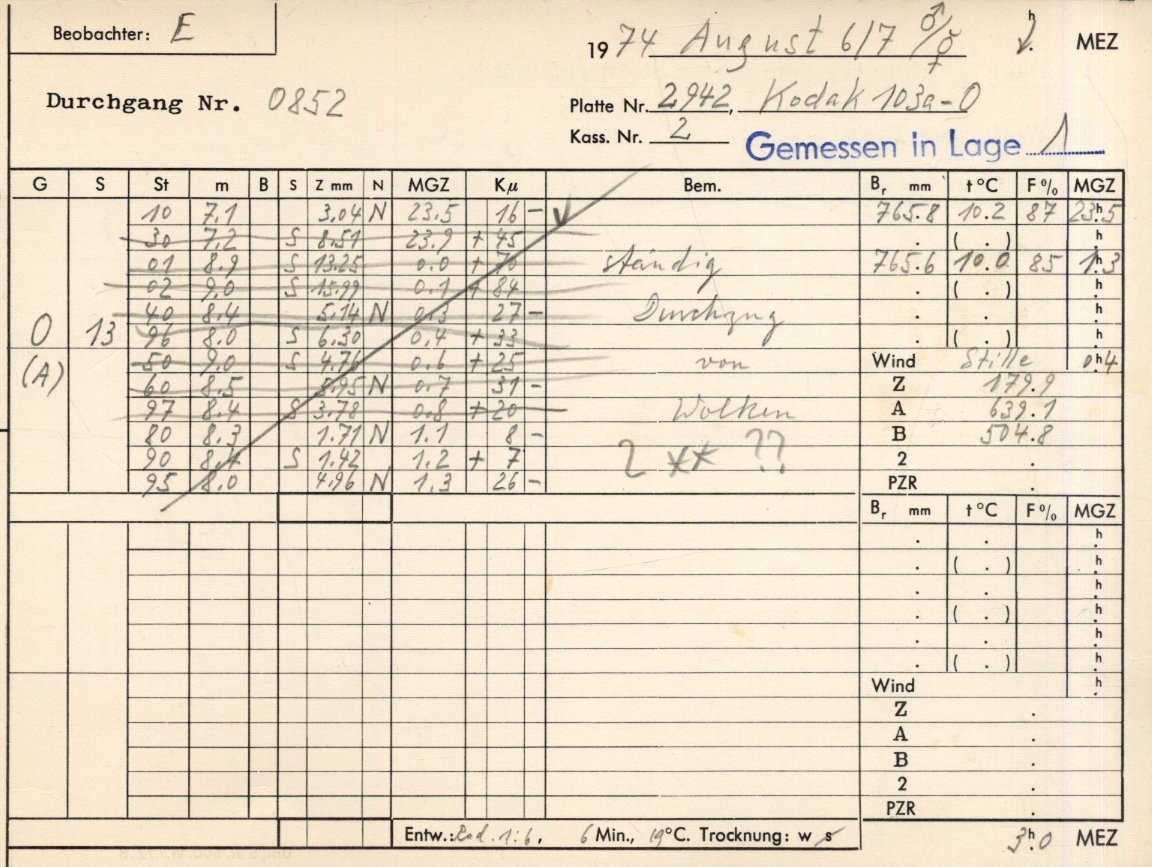 Beobachter: E
1974 August 6/7 ♂/☿ h MEZ
Durchgang Nr. 0852
Platte Nr. 2942, Kodak 103a-O
Kass. Nr. 2
Gemessen in Lage 1
G S St m B S Z mm N MGZ Kμ Bem. Br mm t°C F% MGZ
10 7.1 3.04 N 23.5 16 - 765.8 10.2 87 23h.5
30 7.2 S 8.51 23.9 + 45 . ( . ) h
01 8.9 S 13.25 0.0 + 70 ständig 765.6 10.0 85 1h.3
02 9.0 S 15.99 0.1 + 84 . ( . ) h
40 8.4 5.14 N 0.3 27 - Durchzug . . h
0 13 96 8.0 S 6.30 0.4 + 33 . ( . ) h
(A) 50 9.0 S 4.76 0.6 + 25 von Wind Stille 0h.4
60 8.5 5.95 N 0.7 31 - Z 179.9
97 8.4 S 3.78 0.8 + 20 Wolken A 639.1
80 8.3 1.71 N 1.1 8 - B 504.8
90 8.4 S 1.42 1.2 + 7 2 ** ?? 2 .
95 8.0 4.96 N 1.3 26 - PZR .
Br mm t°C F% MGZ
. . h
. ( . ) h
. . h
. ( . ) h
. . h
. ( . ) h
Wind h
Z .
A .
B .
2 .
PZR .
Entw.: Rod. 1:6, 6 Min., 19°C. Trocknung: w s
3h.0 MEZ